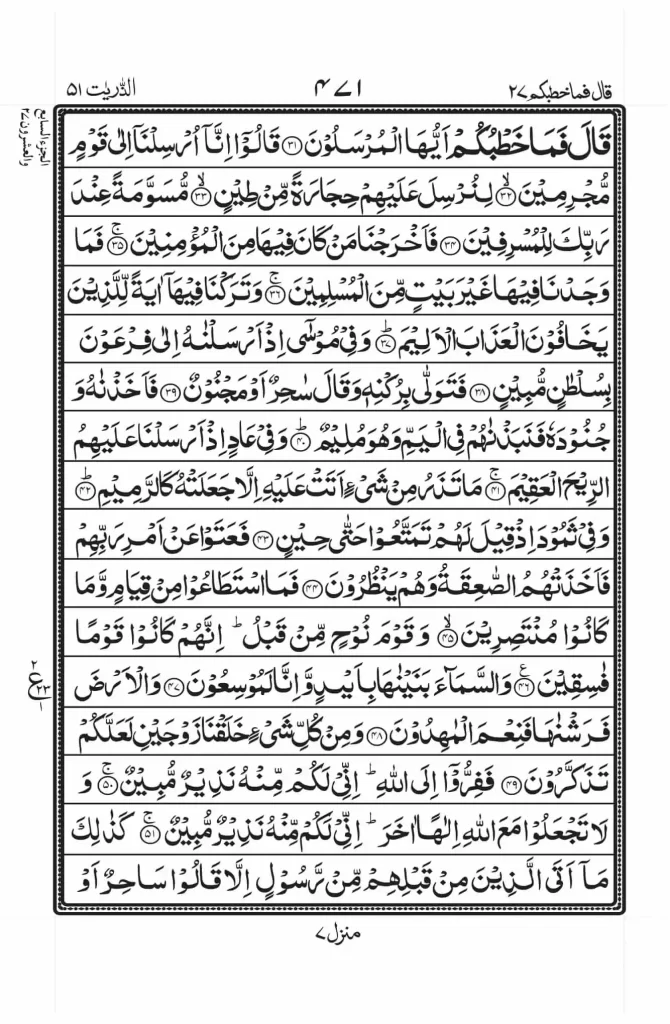 قال فماخطبکم ۲۷
۴۷۱
الذّٰریٰت ۵۱
الجزء السابع والعشرون ۲۷
قَالَ فَمَا خَطْبُكُمْ اَيُّهَا الْمُرْسَلُوْنَ ۝۳۱ قَالُوْۤا اِنَّاۤ اُرْسِلْنَاۤ اِلٰى قَوْمٍ
مُّجْرِمِيْنَ ۝۳۲ۙ لِنُرْسِلَ عَلَيْهِمْ حِجَارَةً مِّنْ طِيْنٍ ۝۳۳ۙ مُّسَوَّمَةً عِنْدَ
رَبِّكَ لِلْمُسْرِفِيْنَ ۝۳۴ فَاَخْرَجْنَا مَنْ كَانَ فِيْهَا مِنَ الْمُؤْمِنِيْنَ ۝۳۵ۚ فَمَا
وَجَدْنَا فِيْهَا غَيْرَ بَيْتٍ مِّنَ الْمُسْلِمِيْنَ ۝۳۶ۚ وَتَرَكْنَا فِيْهَاۤ اٰيَةً لِّلَّذِيْنَ
يَخَافُوْنَ الْعَذَابَ الْاَلِيْمَ ۝۳۷ؕ وَفِيْ مُوْسٰۤى اِذْ اَرْسَلْنٰهُ اِلٰى فِرْعَوْنَ
بِسُلْطٰنٍ مُّبِيْنٍ ۝۳۸ فَتَوَلّٰى بِرُكْنِهٖ وَقَالَ سٰحِرٌ اَوْ مَجْنُوْنٌ ۝۳۹ فَاَخَذْنٰهُ وَ
جُنُوْدَهٗ فَنَبَذْنٰهُمْ فِي الْيَمِّ وَهُوَ مُلِيْمٌ ۝۴۰ؕ وَفِيْ عَادٍ اِذْ اَرْسَلْنَا عَلَيْهِمُ
الرِّيْحَ الْعَقِيْمَ ۝۴۱ۚ مَا تَذَرُ مِنْ شَيْءٍ اَتَتْ عَلَيْهِ اِلَّا جَعَلَتْهُ كَالرَّمِيْمِ ۝۴۲ؕ
وَفِيْ ثَمُوْدَ اِذْ قِيْلَ لَهُمْ تَمَتَّعُوْا حَتّٰى حِيْنٍ ۝۴۳ فَعَتَوْا عَنْ اَمْرِ رَبِّهِمْ
فَاَخَذَتْهُمُ الصّٰعِقَةُ وَهُمْ يَنْظُرُوْنَ ۝۴۴ فَمَا اسْتَطَاعُوْا مِنْ قِيَامٍ وَّمَا
كَانُوْا مُنْتَصِرِيْنَ ۝۴۵ۙ وَقَوْمَ نُوْحٍ مِّنْ قَبْلُ ؕ اِنَّهُمْ كَانُوْا قَوْمًا
فٰسِقِيْنَ ۝۴۶ۧ وَالسَّمَآءَ بَنَيْنٰهَا بِاَيْىدٍ وَّاِنَّا لَمُوْسِعُوْنَ ۝۴۷ وَالْاَرْضَ
فَرَشْنٰهَا فَنِعْمَ الْمٰهِدُوْنَ ۝۴۸ وَمِنْ كُلِّ شَيْءٍ خَلَقْنَا زَوْجَيْنِ لَعَلَّكُمْ
تَذَكَّرُوْنَ ۝۴۹ فَفِرُّوْۤا اِلَى اللّٰهِ ؕ اِنِّيْ لَكُمْ مِّنْهُ نَذِيْرٌ مُّبِيْنٌ ۝۵۰ۚ وَ
لَا تَجْعَلُوْا مَعَ اللّٰهِ اِلٰهًا اٰخَرَ ؕ اِنِّيْ لَكُمْ مِّنْهُ نَذِيْرٌ مُّبِيْنٌ ۝۵۱ۚ كَذٰلِكَ
مَاۤ اَتَى الَّذِيْنَ مِنْ قَبْلِهِمْ مِّنْ رَّسُوْلٍ اِلَّا قَالُوْا سَاحِرٌ اَوْ
۲
ع ۲۳
۱
منزل ۷